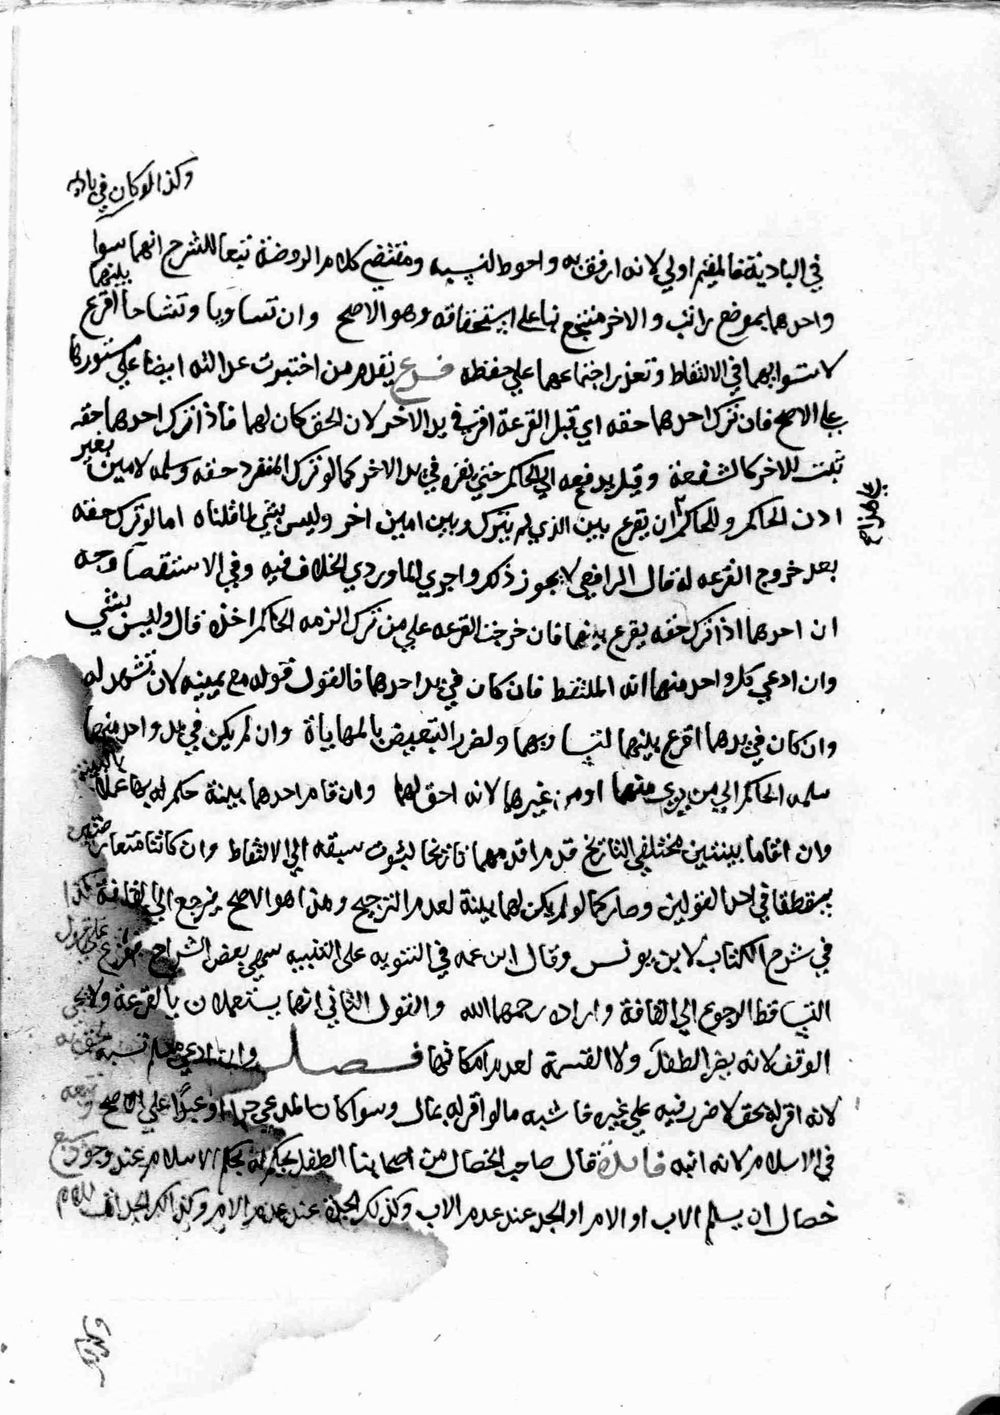 وكذا لو كان في بادية
في البادية فالمقيم اولي لانه ارفق به واحوط لنسبه ومقتضي كلام الروضة تبعا للشرح انهما سوا
بينهما
واحدهما بموضع راتب والاخر منتجع بنا علي استحقاقه وهو الاصح وان تساويا وتشاحا اقرع
لاستوايهما في الالتقاط وتعذر اجتماعهما علي حفظه فرع يقدم من اختبرت عدالته ايضا علي مستورها
علي الاصح فان ترك احدهما حقه اي قبل القرعة اقر في يد الاخر لان الحق كان لهما فاذا ترك احدهما حقه
ثبت للاخر كالشفعة وقيل يدفعه الي الحاكم حتي يقره في يد الاخر كما لو ترك المنفرد حقه وسلمه لامين بغير
اذن الحاكم وللحاكم ان يقرع بين الذي لم يترك وبين امين اخر وليس بشي لما قلناه اما لو ترك حقه
بعد خروج القرعه له قال الرافعي لا يجوز ذلك واجري الماوردي الخلاف فيه وفي الاستقصا وجه
ان احدهما اذا ترك حقه يقرع بينهما فان خرجت القرعه علي من ترك الزمه الحاكم اخذه قال وليس بشي
وان ادعي كل واحد منهما انه الملتقط فان كان في يد احدهما فالقول قوله مع يمينه لان تشهد له
وان كان في يدهما اقرع بينهما لتساويهما ولضرر التبعيض بالمهاياة وان لم يكن في يد واحد منهما
سلمه الحاكم الي من يري منهما او من غيرهما لانه لا حق لهما وان قام احدهما بينة حكم له بها عملا بالبينة
وان اقاما بينتين مختلفي التاريخ قدم اقدمهما تاريخا لثبوت سبقه الي الالتقاط وان كانتا متعارضتين
سقطتا في احد القولين وصار كما لو لم يكن لهما بينة لعدم الترجيح وهذا هو الاصح يرجع الي القافة كذا
في شرح الكتاب لابن يونس وقال ابن عمه في التنويه علي التنبيه سهي بعض الشراح ففرع علي قول
التساقط الرجوع الي القافة واراده رحمهما الله والقول الثاني انهما يستعملان بالقرعة ولا يجي
الوقف لانه يضر الطفل ولا القسمة لعدم امكانها فصل وان ادعي مسلم نسبه لحق به
لانه اقر له بحق لا ضرر فيه علي غيره فاشبه ما لو اقر له بمال وسوا كان المدعي حرا او عبدا علي الاصح وتبعه
في الاسلام لانه ابنه فائدة قال صاحب الخصال من اصحابنا الطفل يحكم له بحكم الاسلام عند وجود سبع
خصال ان يسلم الاب او الام او الجد عند عدم الاب وكذلك الجدة عند عدم الام وكذلك الجد للام